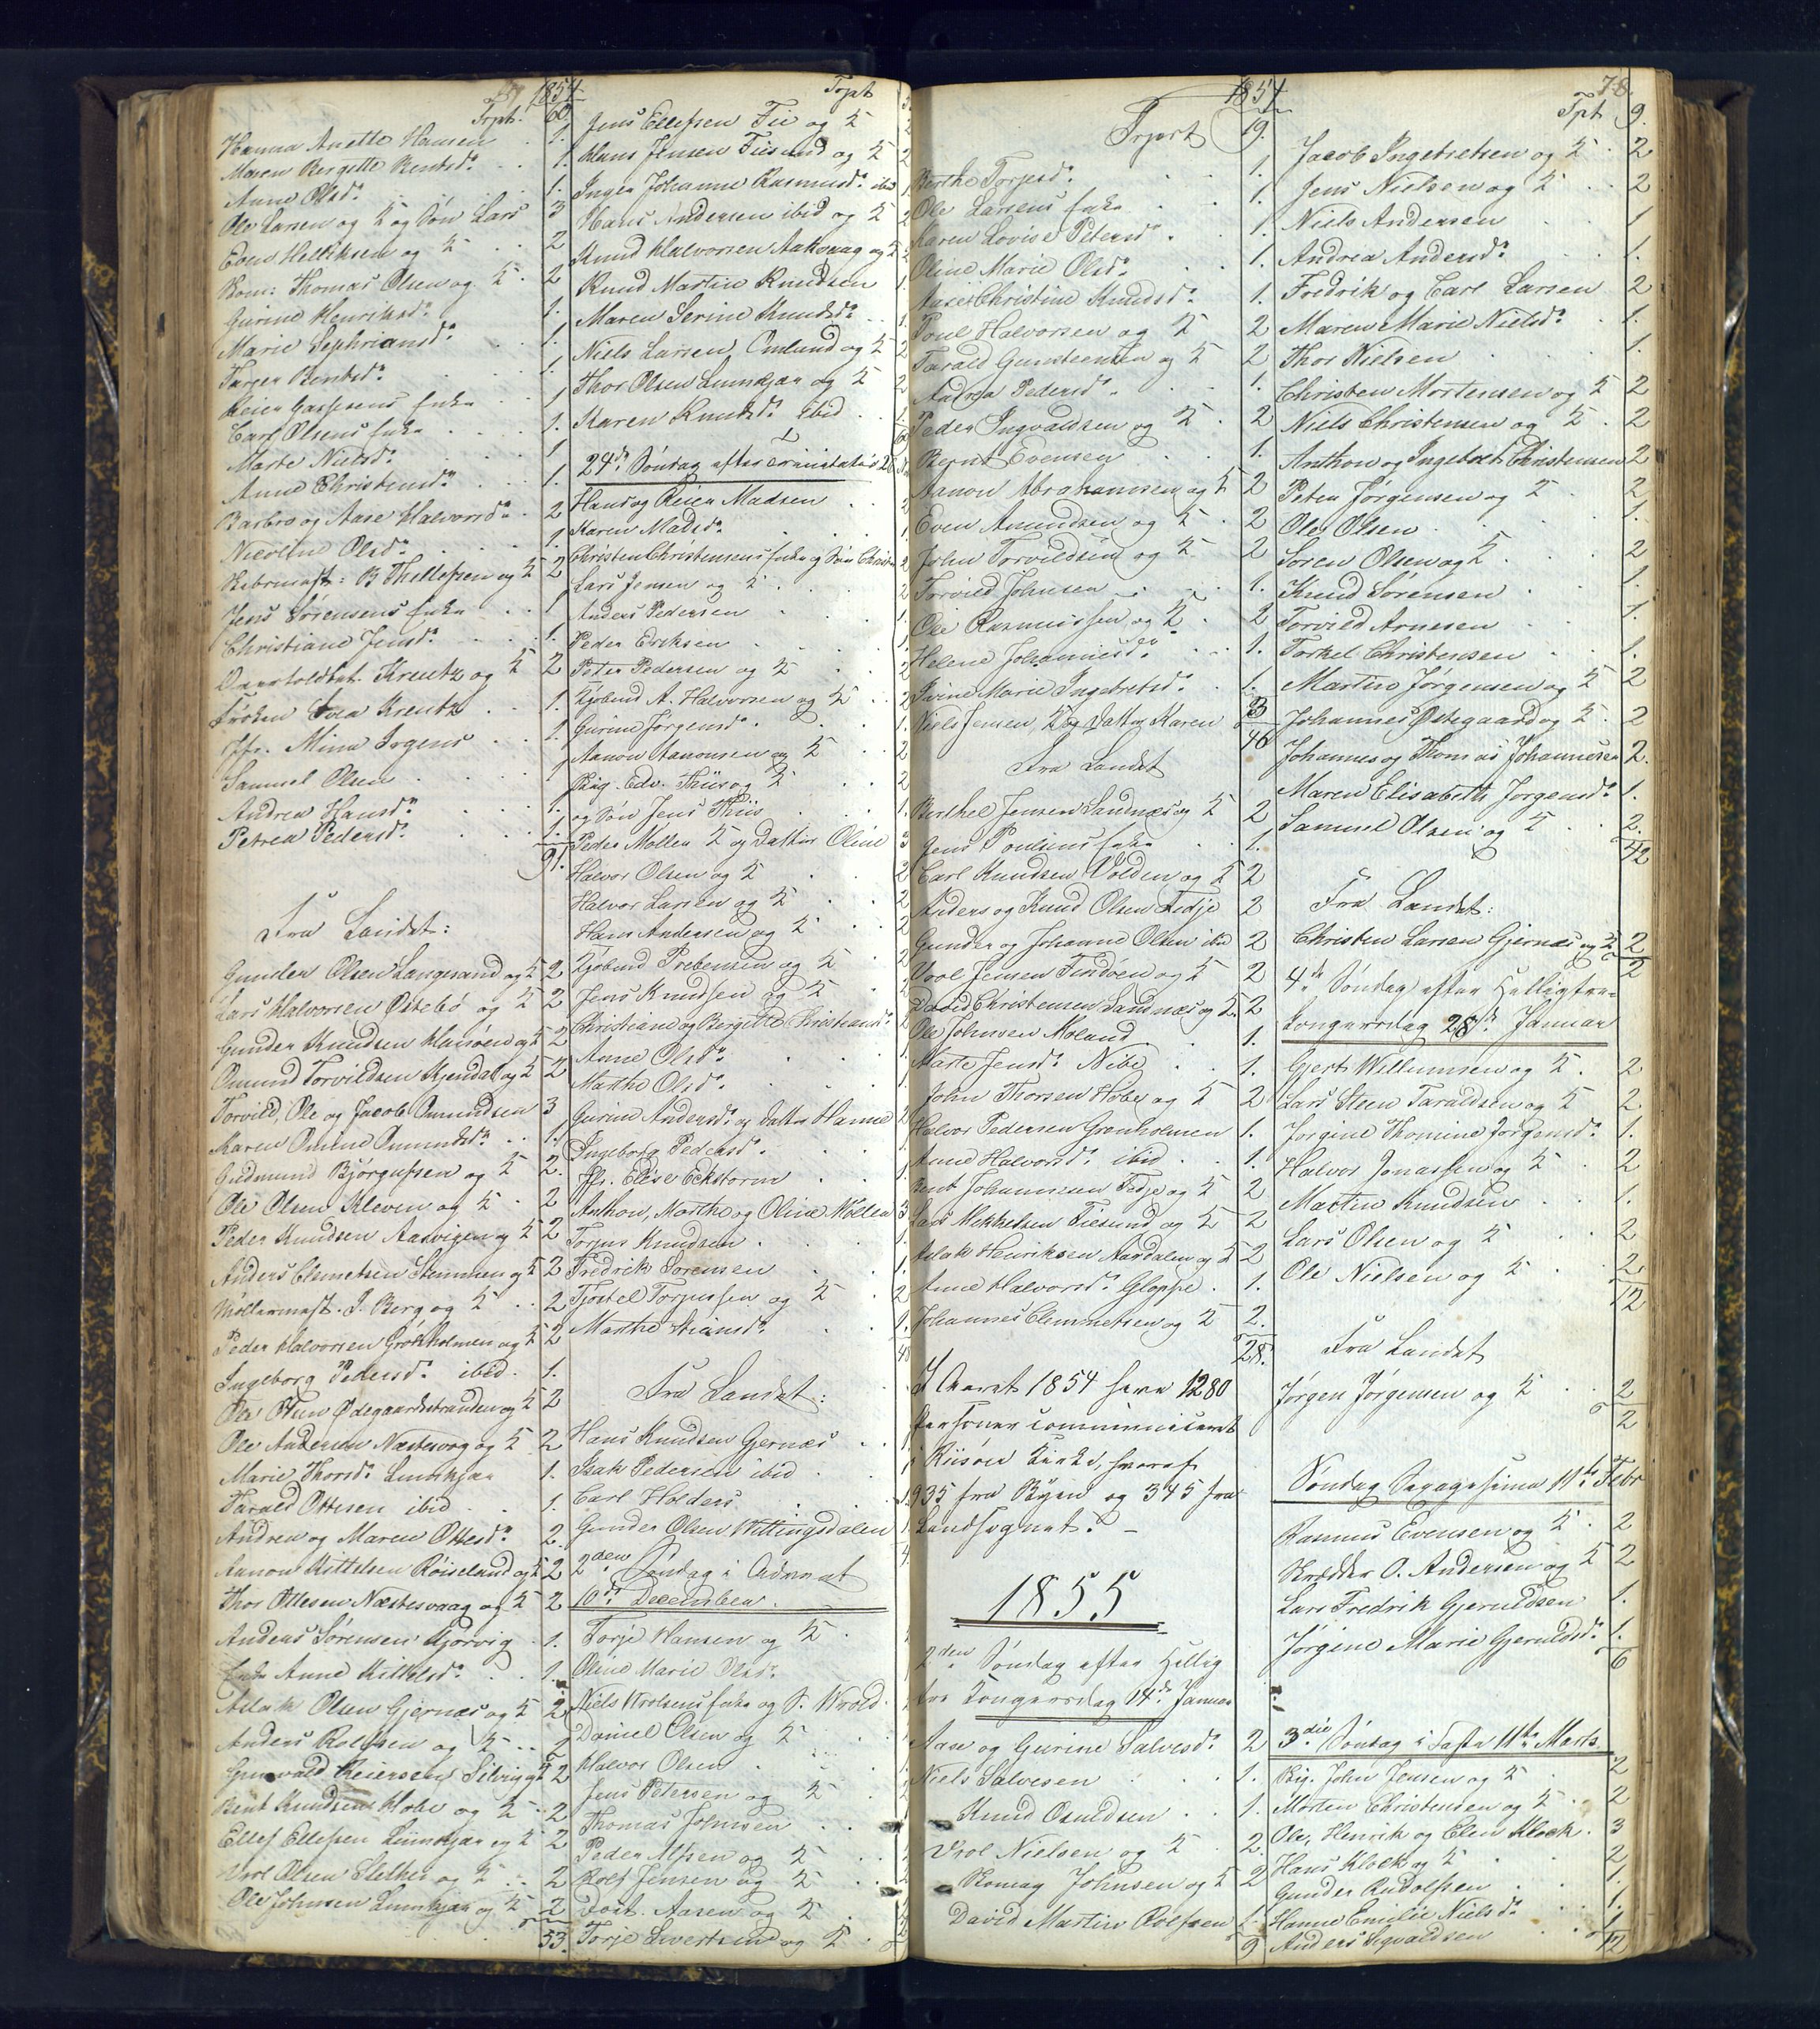 1854
Trpt. 60
Hanna Anette Hansen 1.
Maren Bergitte Bentsd. 1.
Anne Olsd. 1.
Ole Larsen og K og Søn Lars 3
Even Helliksen og K 2
Kom: Thomas Olsen og K 2
Gurine Henriksd. 1.
Marie Zephriansd. 1.
Targer Bentsd. 1
Reier Garssens Enke 1
Carl Olsens Enke 1.
Marte Nielsd. 1
Anne Christensd. 1.
Barbro og Aase Halvorsd. 2
Nicoline Olsd. 1
Rebermast: B Thellefsen og K 2
Jens Sørensens Enke 1
Christiane Jensd. 1.
Overtoldbet. Kreutz og K 2
Frøken Kreutz 1.
Jfr. Mina Irgens 1
Samuel Olsen 1
Andrea Hansd. 1.
Petrea Pedersd. 1.
91.
Fra Landet:
Gunder Olsen Langesand og K 2
Lars Halvorsen Østebø og K 2
Gunder Knudsen Hasøen og K 2
Omund Torvildsen Kjendal og K 2
Torvild, Ole og Jacob Omundsen 3
Karen Omine Omundsd. 1.
Gudmund Bjørgufsen og K 2.
Ole Olsen Kleven og K 2
Peder Knudsen Aasvigen og K 2
Anders Clemetsen Stemmen og K 2
Møllermast. J. Berg og K 2
Peder Halvorsen Grønholmen og K 2
Ingeborg Pedersd. ibid. 1.
Ole Olsen Ødegaardsstranden og K 2
Ole Andersen Næstesvaag og K 2
Marie Thorsd. Lindskjær 1.
Tarald Ottesen ibid 1.
Andrea og Maren Ottesd. 2.
Aanon Kittelsen Røiseland og K 2
Thor Ottesen Næstesvaag og K 2
Anders Sørensen Kjørvig 1.
Enke Anne Kittelsd. 1.
Aslak Olsen Gjernæs og K 2
Anders Rolfsen og K 2
Grunvald Reiersen Silvig og K 2
Bent Knudsen Hobe og K 2
Ellef Ellefsen Lindskjær og K 2
Vrol Olsen Sletter og K 2
Ole Johnsen Lindskjær og K 2
53.
Trpt
Jens Ellefsen Fie og K
Hans Jensen Fiesund og K 2
Inger Johanne Rasmusd. ibid
Hans Andersen ibid og K 2
Knud Halvorsen Aakvaag og K 2
Knud Martin Knudsen 1
Maren Serine Knudsd. 1.
Niels Larsen Omlund og K 2
Thor Olsen Lindskjær og K 2
Karen Knudsd. ibid
24de Søndag efter Trinitatis 26
Hans og Reier Madsen
Karen Madsd.
Christen Christensens Enke og Søn Christen 2
Lars Jensen og K 2
Anders Pedersen 1
Peder Eriksen
Peter Pedersen og K 2
Kjøbmd A. Halvorsen og K 2
Gurine Jørgensd. 1.
Aanon Aanonsen og K 2
Big. Edv. Thiis og K 2
og Søn Jens Thiis 1.
Peder Møller K og Datter Oline 3
Halvor Olsen og K 2
Halvor Larsen og K 2
Hans Andersen og K 2
Kjøbmd Prebensen og K 2
Jens Knudsen og K 2
Christiane og Bergitte Christiansd. 2
Anne Olsd. 1
Marthe Olsd. 1.
Gurine Andersd. og Datter Hanne 2
Ingeborg Pedersd. 1
Jfr. Elise Eckstorm 1
Anthon, Marthe og Olise Møller 3
Torjus Knudsen 1.
Fredrik Sørensen 1.
Tjøstel Torjussen og K 2
Marthe Stiansd. 1.
48
Fra Landet:
Hans Knudsen Gjernæs 1
Isak Pedersen ibid 1
Carl Holders 1
Gunder Olsen Wittingsdalen 1
4
2den Søndag i Advent
10de December.
Torje Hansen og K
Oline Marie Olsd.
Niels Wrolsens Enke og S. Wrold
Daniel Olsen og K
Halvor Olsen
Jens Petersen og K
Thomas Johnsen
Peder Alfsen og K
Rolf Jensen og K
Aasen og K
Torje Sivertsen og K
1854
Trprt 19.
Berthe Torjesd. 1.
Ole Larsens Enke 1.
Karen Lovise Petersd. 1.
Oline Marie Olsd. 1.
Aase Christine Knudsd. 1.
Poul Halvorsen og K 2
Tarald Gunsteensen og K 2
Andrea Pedersd. 1.
Peder Ingvaldsen og K 2
Bernt Evensen 1.
Aanon Abrahamsen og K 2
Even Amundsen og K 2
John Torvildsen og K 2
Torvild Johnsen 1.
Ole Rasmussen og K 2
Helene Johannesd. 1.
Irine Marie Ingebretsd. 1.
Niels Jensen, K og Datter Karen 3
46
Fra Landet
Berthel Jensen Sandnæs og K 2
Jens Poulsens Enke 1.
Carl Knudsen Volden og K 2
Anders og Knud Olsen Fedje 2
Gunder og Johanne Olsen ibid 2
Vrol Jensen Tindøen og K 2
David Christensen Sandnæs og K 2
Ole Johnsen Moland 1.
Marte Jensd. Nibe 1.
John Thorsen Hobe og K 2
Halvor Pedersen Grønholmen 1.
Anne Halvorsd. ibid 1.
Bent Johannesen Fedje og K 2
Lars Mikkelsen Fiesund og K 2
Aslak Henriksen Aardalen og K 2
Anne Halvorsd. Gloppe 1.
Johannes Clemmetsen og K 2.
28.
I Aaret 1854 have 1280
Personer communiceret
i Riisøer Kirke, hvoraf
935 fra Byen og 345 fra
Landsognet.
1855
2den Søndag efter Hellig
tre Kongersdag 14de Januar
Aase og Gurine Salvesd. 2
Niels Salvesen 1.
Knud Osuldsen 1.
Vrol Nielsen og K 2.
Romag Johnsen og K 2
David Martin Rolfsen 1.
9
78.
Tpt 9.
Jacob Ingebretsen og K 2
Jens Nielsen og K 2
Niels Andersen 1
Andrea Andersd. 1.
Fredrik og Carl Larsen 2
Maren Marie Nielsd. 1.
Thor Nielsen 1.
Christen Mortensen og K 2
Niels Christensen og K 2
Anthon og Ingebret Christensen 2
Peter Jørgensen og K 2
Ole Olsen 1.
Søren Olsen og K 2
Knud Sørensen 1.
Torvild Arnesen 1.
Torkel Christensen 1.
Martin Jørgensen og K 2
Johannes Østegaard og K 2
Johannes og Thomas Johannesen 2.
Maren Elisabeth Jørgensd. 1.
Samuel Olsen og K 2.
42
Fra Landet:
Christen Larsen Gjernæs og K 2
2
4de Søndag efter Helligtre-
kongersdag 28de Januar
Gjert Willumsen og K 2
Lars Steen Taraldsen og K 2
Jørgine Thomine Jørgensd. 1.
Halvor Jonassen og K 2
Martin Knudsen 1.
Lars Olsen og K 2
Ole Nielsen og K 2
12
Fra Landet
Jørgen Jørgensen og K 2
2
Søndag Sexagesima 11te Febr
Rasmus Evensen og K 2
Skrædder O. Andersen og K 2
Lars Fredrik Gjeruldsen 1.
Jørgine Marie Gjeruldsd. 1.
6
3die Søndag i Faste 11te Marts
Big. John Jensen og K 2
Morten Christensen og K 2
Ole, Henrik og Elen Klock 3
Hans Klock og K 2
Gunder Rudolfsen 1.
Hanne Emilie Nielsd. 1.
Anders Ingvaldsen 1
12